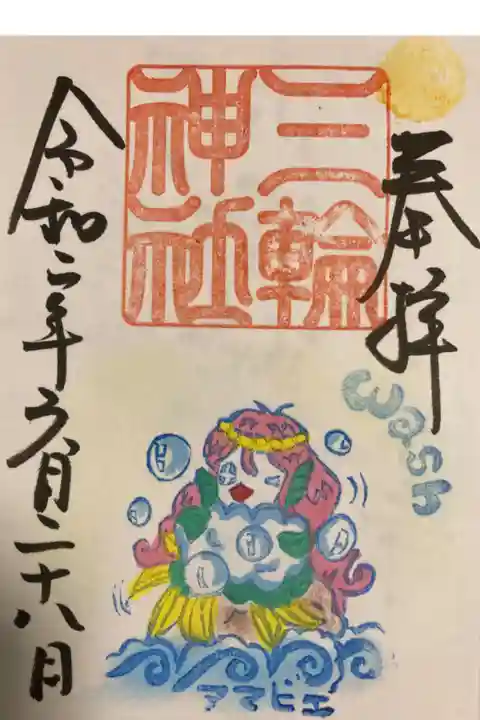 奉拝
三輪
神社
令和二年六月二十八日
アマビエ